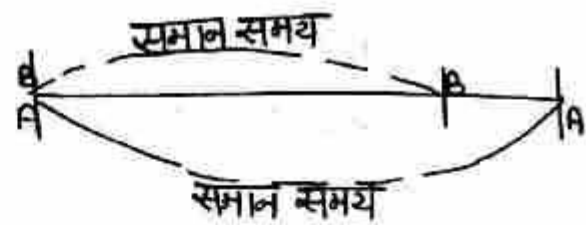 समान समय
B
B
A
A
समान समय